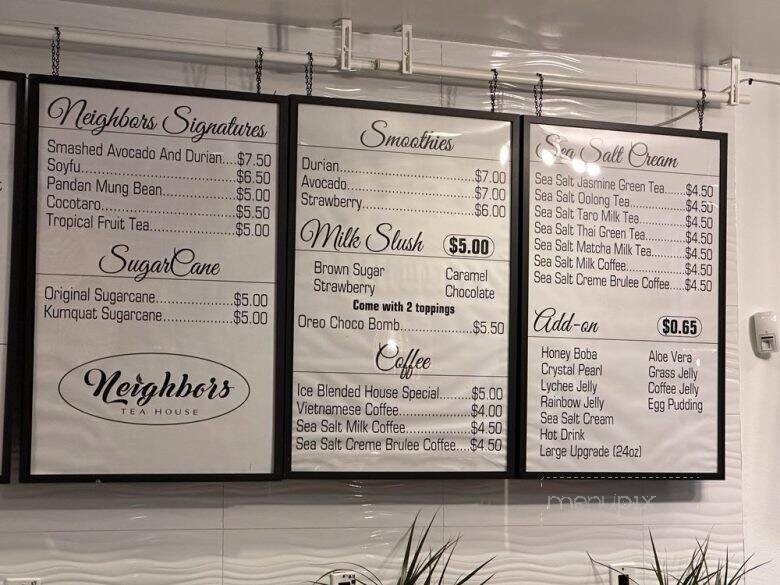 Neighbors Signatures
Smashed Avocado And Durian....$7.50
Soyfu..............................$6.50
Pandan Mung Bean................$5.00
Cocotaro...........................$5.50
Tropical Fruit Tea..................$5.00
SugarCane
Original Sugarcane................$5.00
Kumquat Sugarcane..............$5.00
Neighbors
TEA HOUSE
Smoothies
Durian..............................$7.00
Avocado...........................$7.00
Strawberry........................$6.00
Milk Slush $5.00
Brown Sugar Caramel
Strawberry Chocolate
Come with 2 toppings
Oreo Choco Bomb................$5.50
Coffee
Ice Blended House Special.......$5.00
Vietnamese Coffee................$4.00
Sea Salt Milk Coffee...............$4.50
Sea Salt Creme Brulee Coffee....$4.50
Sea Salt Cream
Sea Salt Jasmine Green Tea.....$4.50
Sea Salt Oolong Tea..............$4.50
Sea Salt Taro Milk Tea............$4.50
Sea Salt Thai Green Tea..........$4.50
Sea Salt Matcha Milk Tea........$4.50
Sea Salt Milk Coffee..............$4.50
Sea Salt Creme Brulee Coffee...$4.50
Add-on $0.65
Honey Boba Aloe Vera
Crystal Pearl Grass Jelly
Lychee Jelly Coffee Jelly
Rainbow Jelly Egg Pudding
Sea Salt Cream
Hot Drink
Large Upgrade (24oz)
menupix